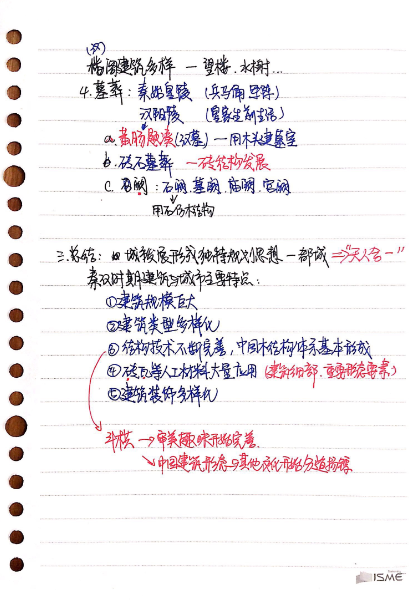 (汉)
楼阁建筑多样 — 望楼、水榭...
4.墓葬：秦始皇陵 (兵马俑
汉阳陵
a.黄肠题凑(汉墓) —用木头建墓室
b.砖石墓葬 —砖结构发展
c.石阙：石阙、墓阙、庙阙、宫阙
用石仿木结构
三.总结：城 发展形成独特规划思想 — 都城 ⇒"天人合一"
秦汉时期建筑与城市主要特点：
①建筑规模巨大
②建筑类型多样化
③结构技术不断完善，中国木结构体系基本形成
④砖瓦等人工材料大量应用 (建筑细部、重要形态要素)
⑤建筑装饰多样化
斗栱 → 审美趣味开始完善
↘中国建筑形态与其他文化开始分道扬镳
ISME